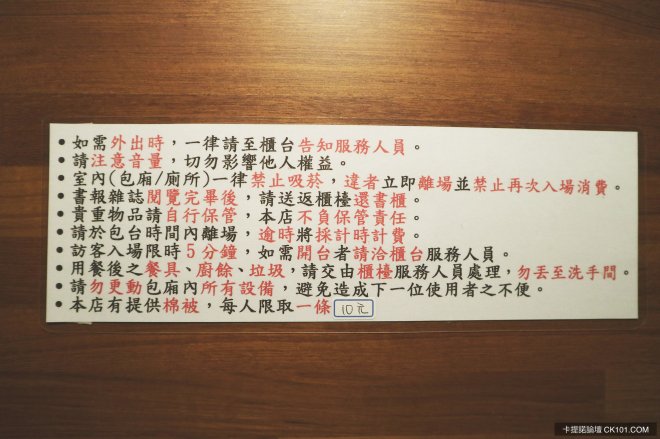 • 如需外出時,一律請至櫃台告知服務人員。
• 請注意音量,切勿影響他人權益。
• 室內(包廂/廁所)一律禁止吸菸,違者立即離場並禁止再次入場消費。
• 書報雜誌閱覽完畢後,請送返櫃檯還書櫃。
• 貴重物品請自行保管,本店不負保管責任。
• 請於包台時間內離場,逾時將採計時計費。
• 訪客入場限時5分鐘,如需開台者請洽櫃台服務人員。
• 用餐後之餐具、廚餘、垃圾,請交由櫃檯服務人員處理,勿丟至洗手間。
• 請勿更動包廂內所有設備,避免造成下一位使用者之不便。
• 本店有提供棉被,每人限取一條 10元
卡提諾論壇 CK101.COM